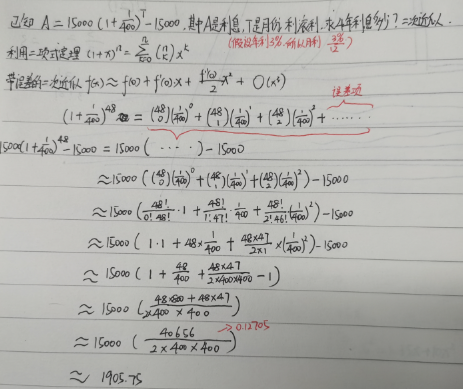 已知 A = 15000 (1+1/400)^T - 15000, 其中A是利息, T是月份, 利滚利. 求4年利息多少? 二次近似.
(假设年利3%, 所以月利 3%/12)
利用二项式定理 (1+x)^n = Σ_{k=0}^{n} (n k) x^k
带误差的二次近似 f(x) ≈ f(0) + f'(0)·x + f''(0)/2 x² + O(x³)
误差项
(1+1/400)^48 = (48 0)(1/400)^0 + (48 1)(1/400)^1 + (48 2)(1/400)^2 + ······
15000(1+1/400)^48 - 15000 = 15000 ( ···· ) - 15000
≈ 15000 ( (48 0)(1/400)^0 + (48 1)(1/400)^1 + (48 2)(1/400)^2 ) - 15000
≈ 15000 ( 48!/0!48! · 1 + 48!/1!47! · 1/400 + 48!/2!46! (1/400)^2 ) - 15000
≈ 15000 ( 1·1 + 48×1/400 + 48×47/2×1 × (1/400)^2 ) - 15000
≈ 15000 ( 1 + 48/400 + 48×47/2×400×400 - 1 )
≈ 15000 ( 48×800 + 48×47 / 2×400×400 )
≈ 15000 ( 40656 / 2×400×400 ) → 0.12705
≈ 1905.75